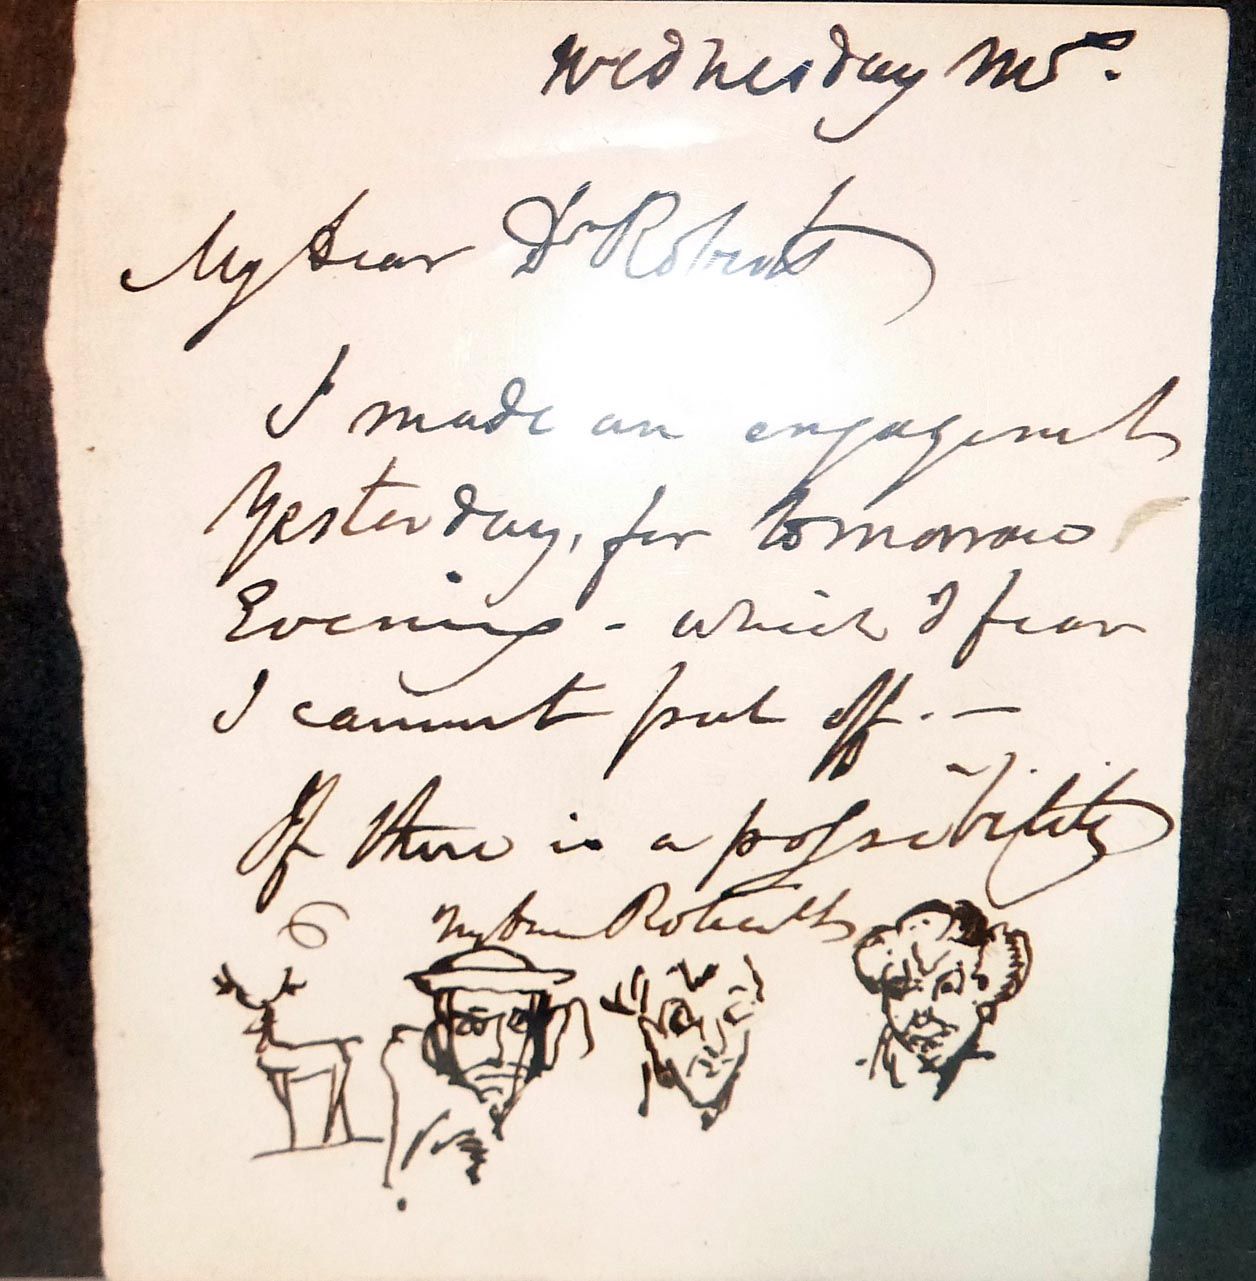 Wednesday M
My dear Dr Roberts
I made an engagement
Yesterday, for tomorrow
Evening - which I fear
I cannot put off. —
If there is a possibility
My dear Roberts